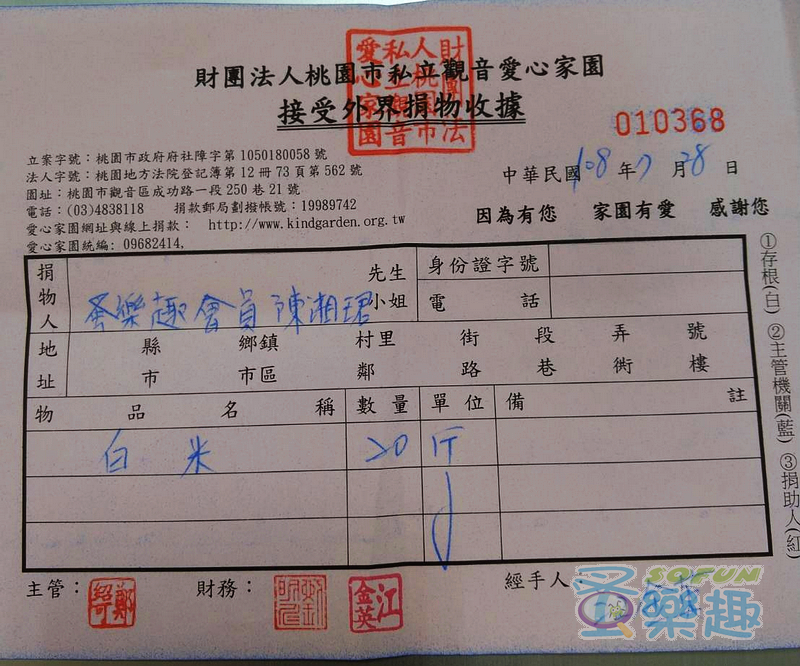 財團法人桃園市私立觀音愛心家園
接受外界捐物收據
財團法人桃園市私立觀音愛心家園
010368
立案字號：桃園市政府府社障字第 1050180058 號
法人字號：桃園地方法院登記簿第 12 冊 73 頁第 562 號
園址：桃園市觀音區成功路一段 250 巷 21 號
電話：(03)4838118 捐款郵局劃撥帳號：19989742
愛心家園網址與線上捐款： http://www.kindgarden.org.tw
愛心家園統編: 09682414,
中華民國 108 年 7 月 28 日
因為有您 家園有愛 感謝您
捐物人 圣樂趣會員陳湘珺 先生 小姐
身份證字號
電話
地址 縣市 鄉鎮市區 村里鄰 街路 段巷 弄衖 號樓
物品名稱 數量 單位 備註
白米 20 斤
①存根(白) ②主管機關(藍) ③捐助人(紅)
主管： 財務： 經手人：
江金英
SOFUN
圣樂趣